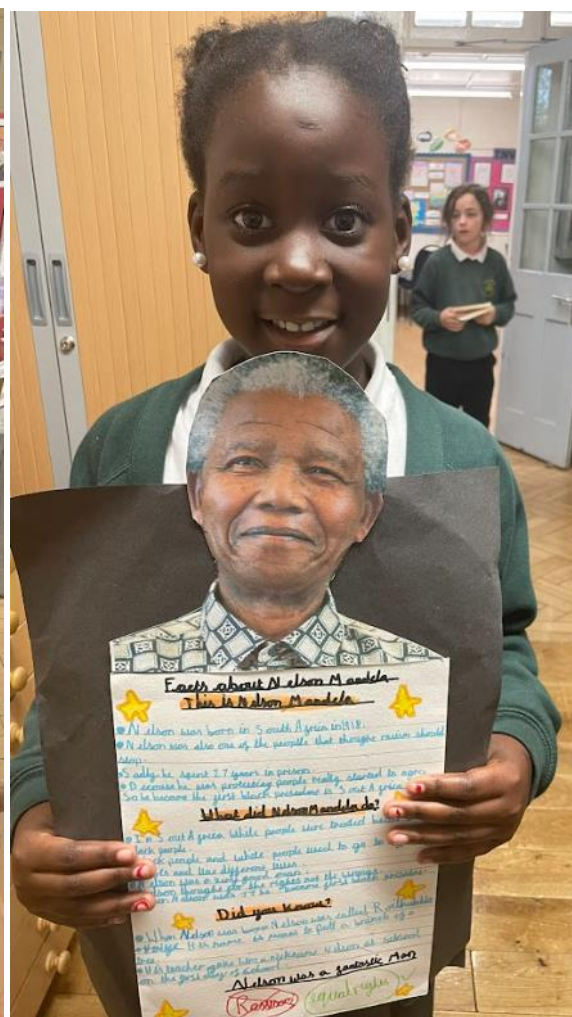 Facts about Nelson Mandela
This is Nelson Mandela
Nelson was born in South Africa in 1918.
Nelson was also one of the people that thought racism should
stop.
Sadly, he spent 27 years in prison.
Because he was protesting people really started to agree
So he became the first black president in South Africa
What did Nelson Mandela do?
In South Africa white people were treated
black people.
people and white people used to go to
and use different
Nelson was a very good man.
for the rights not the wrongs.
Nelson was 77 he become first black president
Did you know?
When Nelson was born Nelson was called
His name is means to pull a branch of a
tree.
His teacher gave him a nickname Nelson at school
on the first day of school
Nelson was a fantastic Man
equal rights